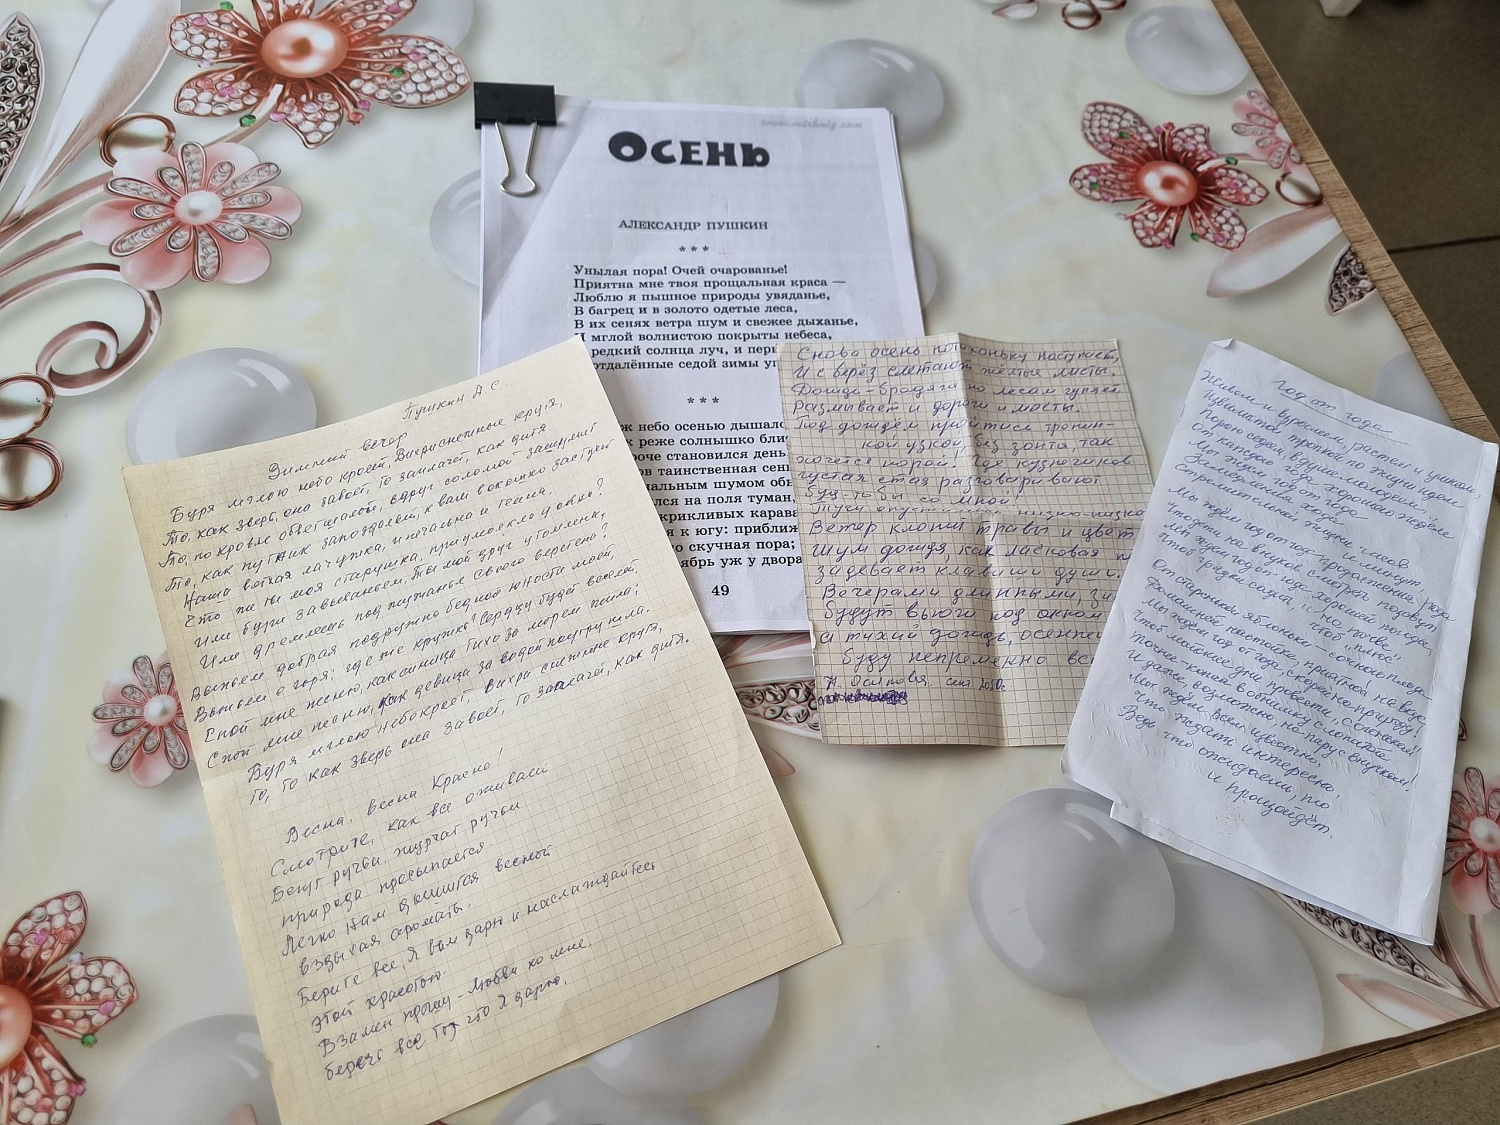 www.mirknig.com
Осень
АЛЕКСАНДР ПУШКИН
***
Унылая пора! Очей очарованье!
Приятна мне твоя прощальная краса —
Люблю я пышное природы увяданье,
В багрец и в золото одетые леса,
В их сенях ветра шум и свежее дыханье,
И мглой волнистою покрыты небеса,
редкий солнца луч, и пер
отдалённые седой зимы уг
***
ж небо осенью дышало
реже солнышко бли
роче становился день,
ов таинственная сен
чальным шумом обн
лся на поля туман,
крикливых карава
я к югу: приближ
о скучная пора;
ябрь уж у двора
49
Пушкин А С
Зимний вечер
Буря мглою небо кроет, Вихри снежные крутя,
То, как зверь, она завоет, То заплачет, как дитя
То, по кровле обветшалой, вдруг соломой зашумит
То, как путник запоздалый, к нам в окошко застучит
Наша ветхая лачужка, и печальна и темна,
Что же ты моя старушка, приумолкла у окна?
Или бури завываньем, Ты мой друг утомлена,
Или дремлешь под жужжанье Своего веретена?
Выпьем добрая подружка бедной юности моей,
Выпьем с горя; где же кружка? Сердцу будет веселей,
Спой мне песню, как синица Тихо за морем жила;
Спой мне песню, как девица За водой поутру шла.
Буря мглою небо кроет, вихри снежные крутя,
То, То как зверь она завоет, То заплачет, как дитя.
Весна, весна Красна!
Смотрите, как все оживаси
Бегут ручьи, журчат ручьи
природа просыпается.
Легко Нам дышится весной
вздыхая ароматы.
Берите все, Я вам дарю и наслаждайтесь
этой красотою.
Взамен прошу - Любви ко мне,
беречь все, то что Я дарю.
Снова осень потихоньку наступает,
И с берёз слетают жёлтые листы.
Дождь-бродяга по лесам гуляет
Размывает и дороги и мосты.
Под дождём пройтись тропин-
кой узкой без зонта, так
хочется порой! Где кузнечиков
густая стая разговаривают
буд-то бы со мной.
Тучи опустились низко-низко
Ветер клонит травы и цвет
Шум дождя как ласковая
задевает клавиши души.
Вечерами длинными,
будут вьюги под окном
а тихий дождь, осенне
буду непременно вс
Н. Осипова сент. 2020г.
Год от года
Живём и взрослеем, растём и умнеем,
Мы ждём год от года
Замедленья хода
Стремительной жизни часов
и минут,
Мы ждём год от года продолженья рода
Чтоб грядки сидели, и на почве
чтоб "плюс",
От старенькой яблоньки - сочного плода
Домашней настойки, приятной на вкус
Мы ждём год от года, скорей на природу!
Чтоб майские дни провести "с огоньком"!
И даже, возможно, на парус внучком!
Мы ждём всем известно,
Что ждать интересно,
Ведь что ожидаешь, то
и произойдёт.